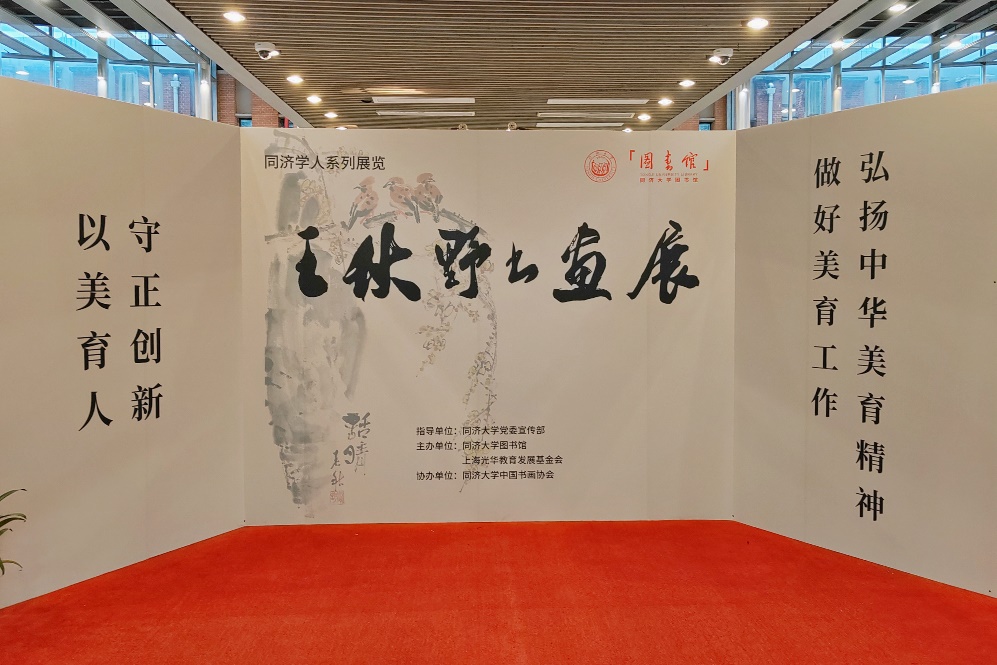 守正创新
以美育人
同济学人系列展览
「图书馆」
同济大学图书馆
王秋野书画展
话晴
指导单位：同济大学党委宣传部
主办单位：同济大学图书馆
上海光华教育发展基金会
协办单位：同济大学中国书画协会
弘扬中华美育精神
做好美育工作